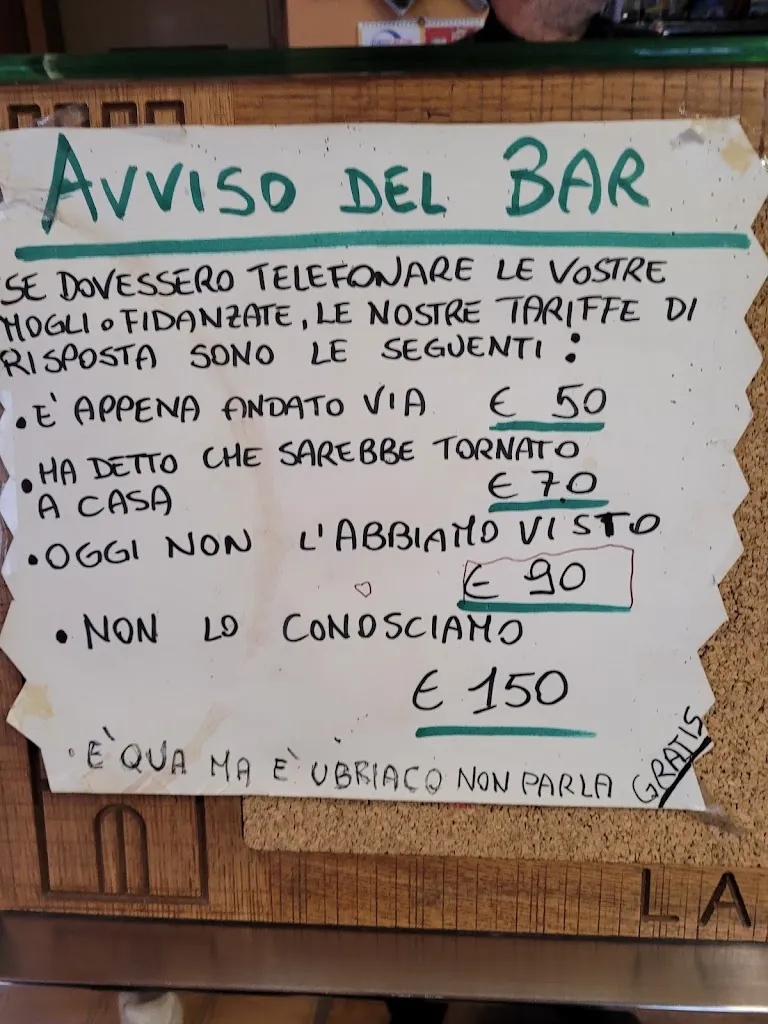 AVVISO DEL BAR
SE DOVESSERO TELEFONARE LE VOSTRE
MOGLI o FIDANZATE, LE NOSTRE TARIFFE DI
RISPOSTA SONO LE SEGUENTI :
• E' APPENA ANDATO VIA € 50
• HA DETTO CHE SAREBBE TORNATO
A CASA € 70
• OGGI NON L'ABBIAMO VISTO
€ 90
• NON LO CONOSCIAMO
€ 150
• E' QUA MA E' UBRIACO NON PARLA GRATIS
LA